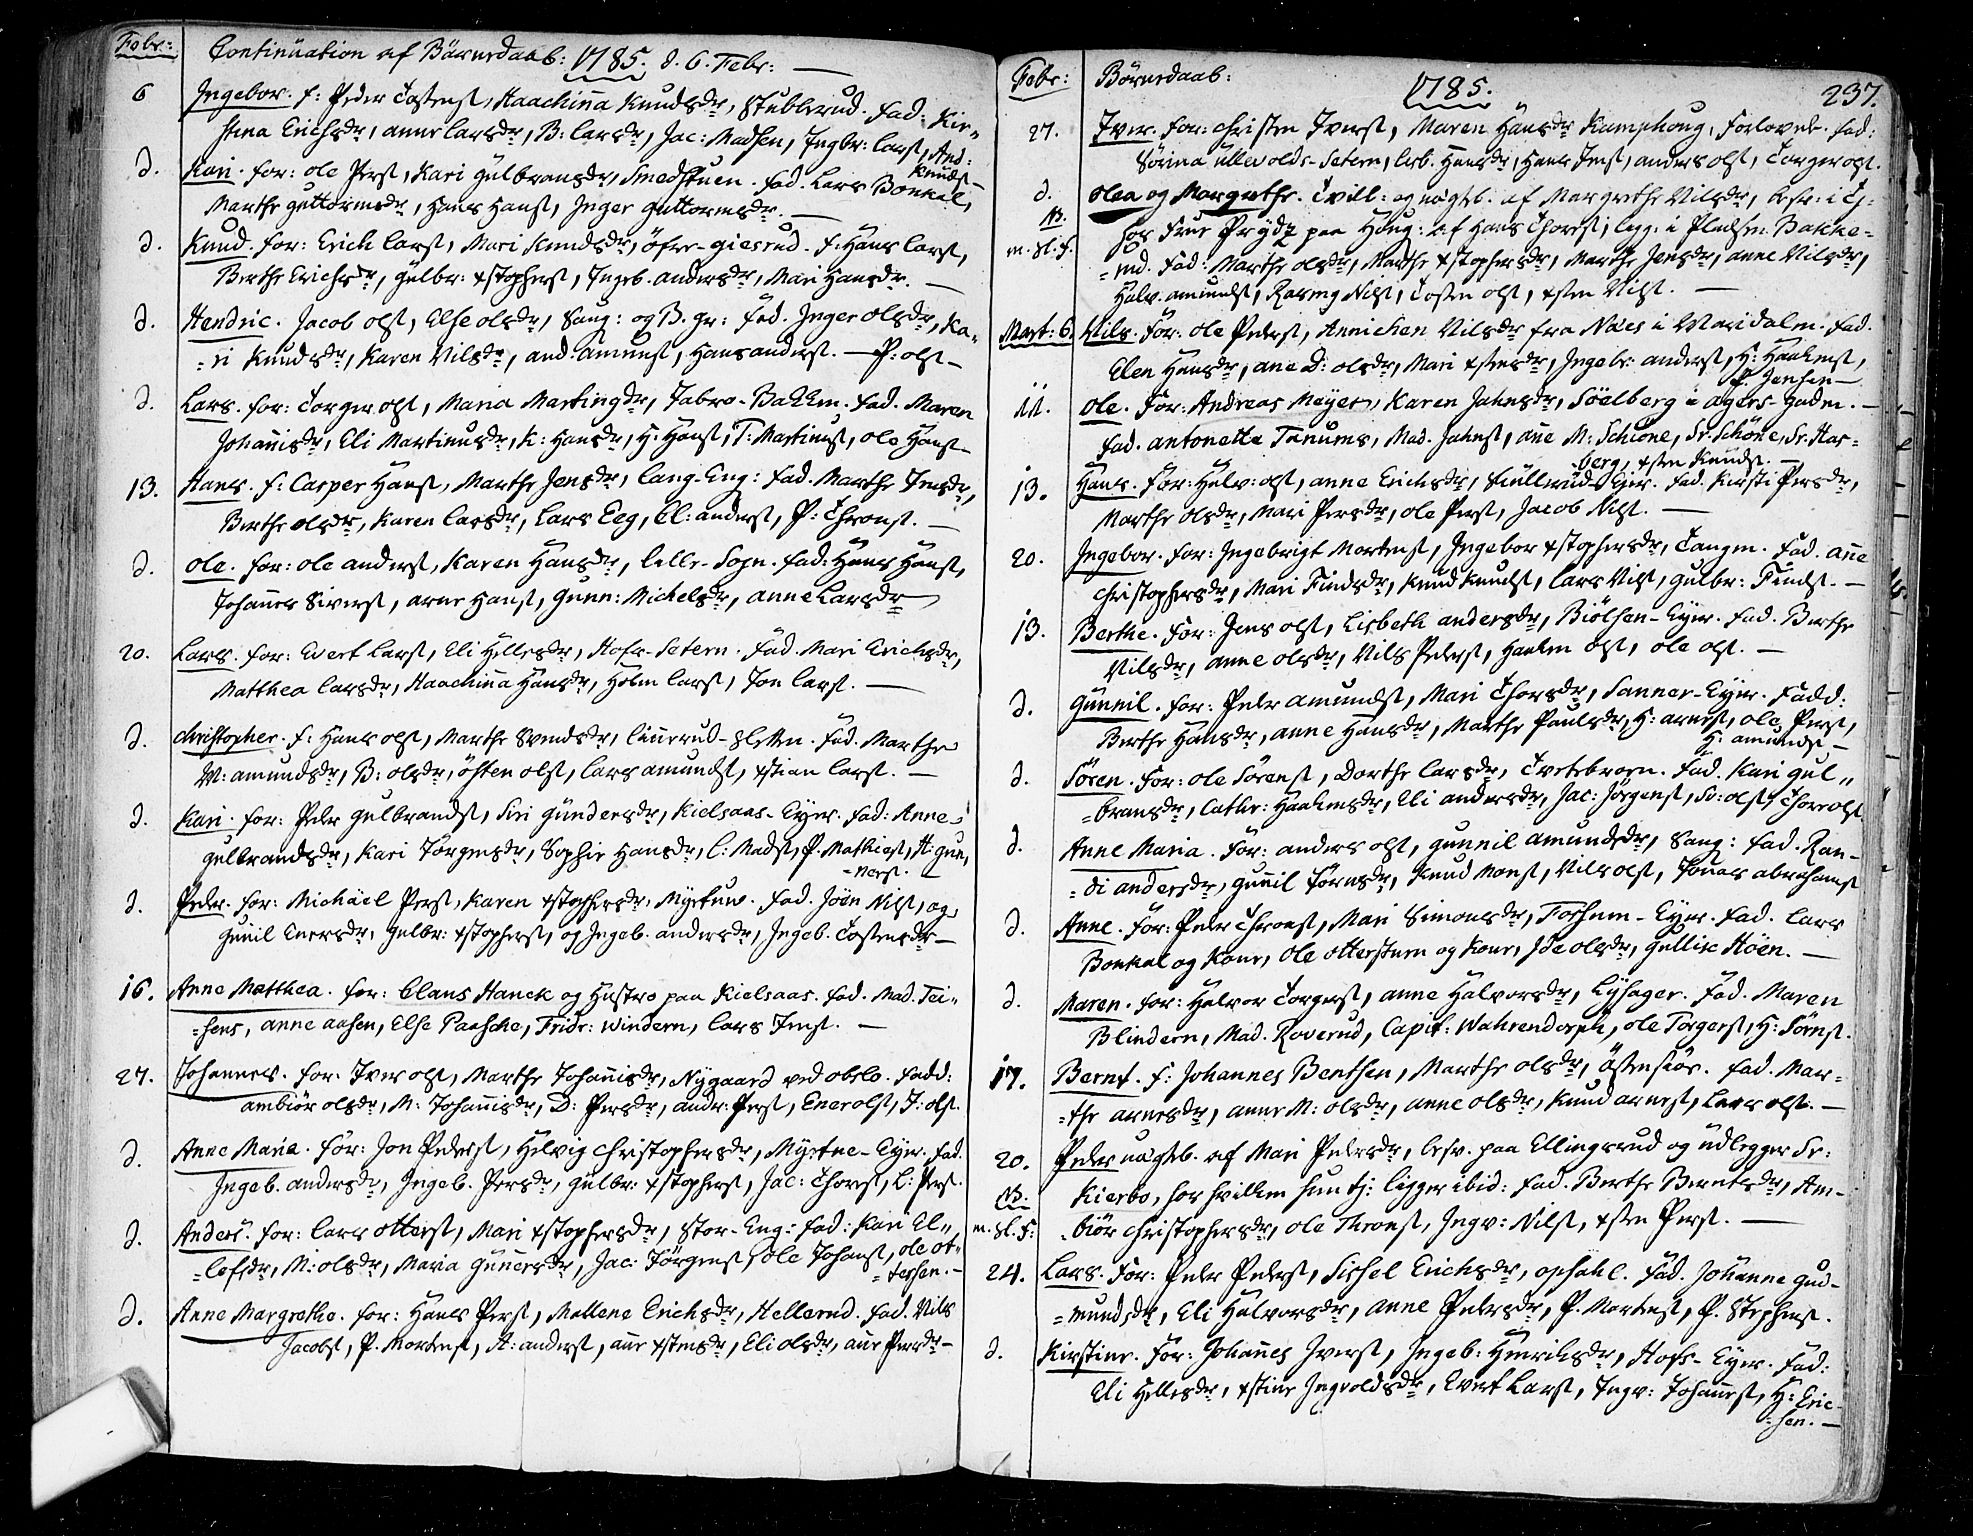 Febr: Continuation af Börnedaab: 1785. d. 6. Febr:
6 Ingebor. f: Peder Tostens, Haachina Knudsdr, Stublerud. fad: Kir-
stina Erichsdr, anne Larsdr, B: Larsdr, Jac: Madsen, Ingbr: Lars, And:
Knuds
d. Kari. for: ole Pers, Kari Gulbransdr, Smedstuen. fad. Lars Bonkal,
Marthe guttormsdr, Hans Hans, Inger guttormsdr.
d. Knud. for: Erich Lars, Mari Knudsdr, öfre-giesrud. f: Hans Lars,
Berthe Erichsdr, Gulbr: xstophers, Ingeb. andersdr, Mari Hansdr.
d. Hendric. Jacob ols, Else olsdr, Saug: og B. gr: fad. Inger olsdr, Ka-
=ri Knudsdr, Karen Nilsdr, and: amuns, Hans anders. P: ols
d. Lars. for: Torger ols, Maria Martinsdr, Jabro-Bakken. fad. Maren
Johanisdr, Eli Martinusdr, K: Hansdr, H: Hans, T: Martinus, ole Hans
13. Hans. f: Casper Hans, Marthe Jensdr, Lang-Eng: fad. Marthe Jensdr,
Berthe olsdr, Karen Larsdr, Lars Eeg, El: anders, P: Throns.
d. ole. for: ole anders, Karen Hansdr, Lille-Sogn. fad: Hans Hans,
Johanes Sivers, arne Hans, Gunn: Mickelsdr, anne Larsdr
20. Lars. for: Evert Lars, Eli Hellesdr, Hofs-Setern. fad. Mari Erichsdr,
Matthea Larsdr, Haachina Hansdr, Holm Lars, Jon Lars.
d. Christopher. f: Hans ols, Marthe Svendsdr, Linerud-Sletten. fad. Marthe
M: amundsdr, B: olsdr, östen ols, Lars amunds, xstian Lars.
d. Kari. for: Peder gulbrands, Siri Gundersdr, Kielsaas-Eyer. fad: Anne
gulbrandsdr, Kari Jörgensdr, Sophie Hansdr, C: Mads, P. Mathies, H: Gun,
=ners.
d. Peder. for: Michäel Pers, Karen xstophersdr, Myrtuw. fad. Joen Nils, og
Gunil Enersdr, Gulbr: xstophers, og Ingeb. andersdr, Ingeb. Tostensdr
16. Anne Matthea. for: Claus Hanck og Hustro paa Kielsaas. fad. Mad. Tei-
=sens, anne aasen, Else Paasche, Fridr: Windern, Lars Jens.
27. Johannes. for: Iver ols, Marthe Johanisdr, Nygaard ved obslo. fadd:
ambiör olsdr, M: Johanisdr, D: Persdr, andr: Pers, Ener ols, J: ols.
d. Anne Maria. for: Jon Peders, Helvig Christophersdr, Myrtue-Eyer. fad.
Ingeb. andersdr, Ingeb. Persdr, Gulbr: xstophers, Jac: Thors, L: Pers.
d. Anders. for: Lars otters, Mari xstophersdr, Stor-Eng: fad: Kari El-
=lefsdr, M: olsdr, Maria Gunersdr, Jac: Jörgens, ole Johans, ole ot-
=tersen.
d. Anne Margrethe. for: Hans Pers, Mallene Erichsdr, Hellerud. fad. Nils
Jacobs, P. Mortens, A: anders, ane xstensdr, Eli olsdr, ane Persdr
Febr: Börnedaab: 1785. 237.
27. Iver. for: Christen Ivers, Maren Hansdr Kamphoug, forlovede. fad:
Sörina ullevolds-Setern, Lisb. Hansdr, Hans Jens, anders ols, Torger ols.
d. olea og Margrethe. Tvill: og uägteb. af Margrethe Nilsdr, besv: i Tj:
NB. hos Frue Prydz paa Houg: af Hans Thores, legg: i Pladsen Bakke-
m. sl. f. =nd. fad: Marthe olsdr, Marthe xstophersdr, Marthe Jensdr, anne Nilsdr,
Halv. amunds, Rasmg Nils, Tosten ols, xsten Nils.
Mart: 6. Nils. for: ole Peders, Annichen Nilsdr fra Näes i Maridalen. fad.
Elen Hansdr, ane D: olsdr, Mari xstensdr, Ingebr: anders, H: Haakens,
P. Jensen
11. ole. for: Andreas Meyer, Karen Jahnsdr, Söelberg i agers-gaden.
fad. antonetta Tanums, Mad. Jahns, ane M: Schiöne, Sr. Schöne, Sr. Has-
berg, xsten Knuds.
13. Hans. for: Halv: ols, anne Erichsdr, Skullerud-Eier. fad. Kirsti Persdr,
Marthe olsdr, Mari Persdr, ole Pers, Jacob Nils.
20. Ingebor. for: Ingebrigt Mortens, Ingebor xstophersdr, Tangen. fad. ane
Christophersdr, Mari Findsdr, Knud Knuds, Lars Nils, Gulbr: Finds.
13. Berthe. for: Jens ols, Lisbeth andersdr, Biölsen-Eyer. fad. Berthe
Nilsdr, anne olsdr, Nils Peders, Haaken ols, ole ols.
d. Gunnil. for: Peder amunds, Mari Thorsdr, Sanner-Eyer. fadd:
Berthe Hansdr, anne Hansdr, Marthe Paulsdr, H: arnes, ole Pers,
H: amunds
d. Sören. for: ole Sörens, Dorthe Larsdr, Tvetebraaen. fad. Kari Gul-
=bransdr, Cathr: Haakensdr, Eli andersdr, Jac: Jörgens, Sv: ols, Thor ols.
d. Anne Maria. for: anders ols, gunnil amundsdr, Saug: fad. Ran-
=di andersdr, gunil Jörnsdr, Knud Mons, Nils ols, Jonas abrahams
d. Anne. for: Peder Throns, Mari Simonsdr, Torshum-Eyer. fad. Lars
Bonkal og Kone, ole ottersturn og Kone, Ide olsdr, Gullik Höen.
d. Maren. for: Halvor Torgers, anne Halvorsdr, Lysager. fad. Maren
Blindern, Mad. Roverud, Capit: Wahrendorph, ole Torgers, H: Sörns.
17. Bernt. f: Johannes Benthsen, Marthe olsdr, östensiöe. fad. Mar-
=the arnesdr, anne M: olsdr, anne olsdr, Knud arnes, Lars ols.
20. Peder uägteb. af Mari Pedersdr, besv. paa Ellingsrud og udlegger Sr.
NB. Kierbo, hos hvilken hun tj: ligger ibid: fad. Berthe Berntsdr, Am-
m. sl. f: =biör Christophersdr, ole Throns, Ingv: Nils, xsten Pers.
24. Lars. for: Peder Peders, Sissel Erichsdr, opsahl. fad. Johanne Gud-
=mundsdr, Eli Halvorsdr, Anne Pedersdr, P. Mortens, P. Stephens.
d. Kirstine. for: Johannes Ivers, Ingeb: Henrichsdr, Hofs-Eyer. fad:
Eli Hellesdr, xstine Ingvoldsdr, Evert Lars, Ingv: Johannes, H: Eric-
=sen.